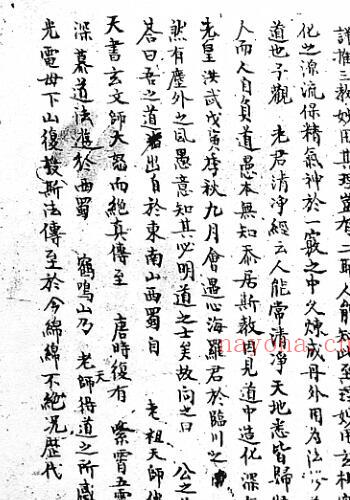 謹推三教妙用其理豈有二耶人能知此至謹妙用玄
化之源流保精氣神於一竅之中久煉成丹外用為法
道也予觀 老君清净經云人能常清净天地悉皆歸
人而人自負道愚本無知忝居斯教因見道中造化深
先皇洪武戊寅季秋九月會遇心海羅君於臨川之
然有塵外之風愚意知其必明道之士矣故問之曰 公之
答曰吾之道出自於東南山西蜀自 老祖天師
天書玄文師大怒而絕真傳至 唐時復有 紫霄五雷
深慕道法進於西蜀 鶴鳴山乃 天老師得道之所
光電母下山復授斯法傳至於今綿綿不絕况歷代
nayona.cn